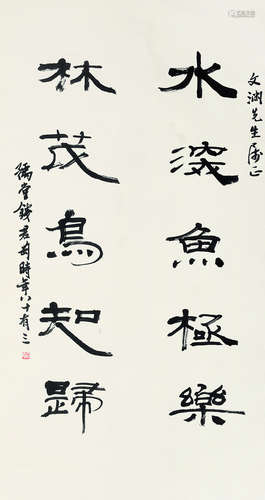 文渊先生属正
水深魚極樂
林茂鳥知歸
钱君匋時年八十有三